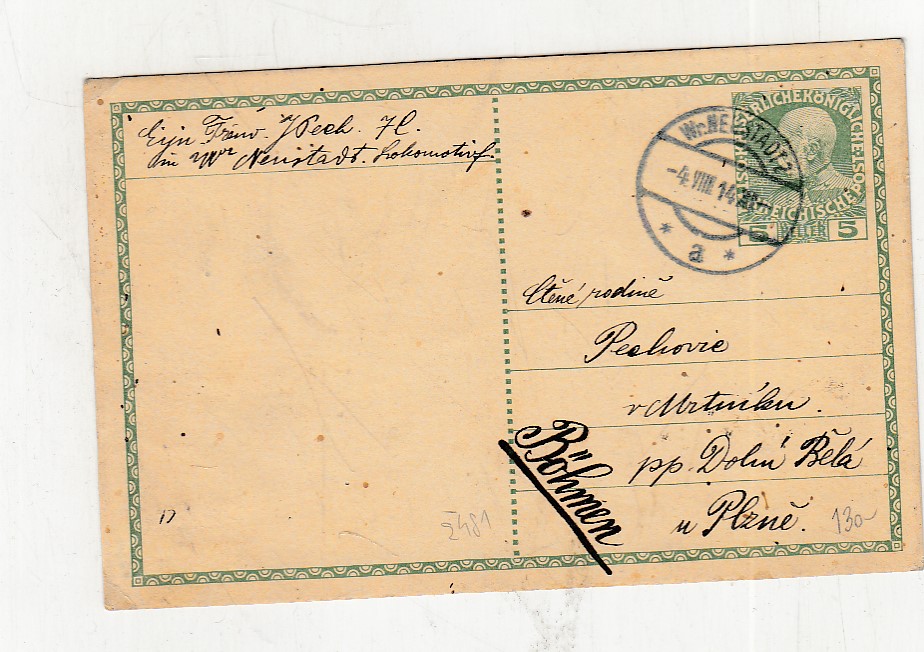 Neustadt. Lokomotivf.
Wr. NEUSTADT 2
-4. VIII 14
* a *
KAISERLICHE KÖNIGLICHE ÖSTERREICHISCHE POST
5 HELLER 5
Ctěné rodině
Pechovic
v Mrtníku.
pp. Dolní Bělá
u Plzně.
Böhmen
2481
130-